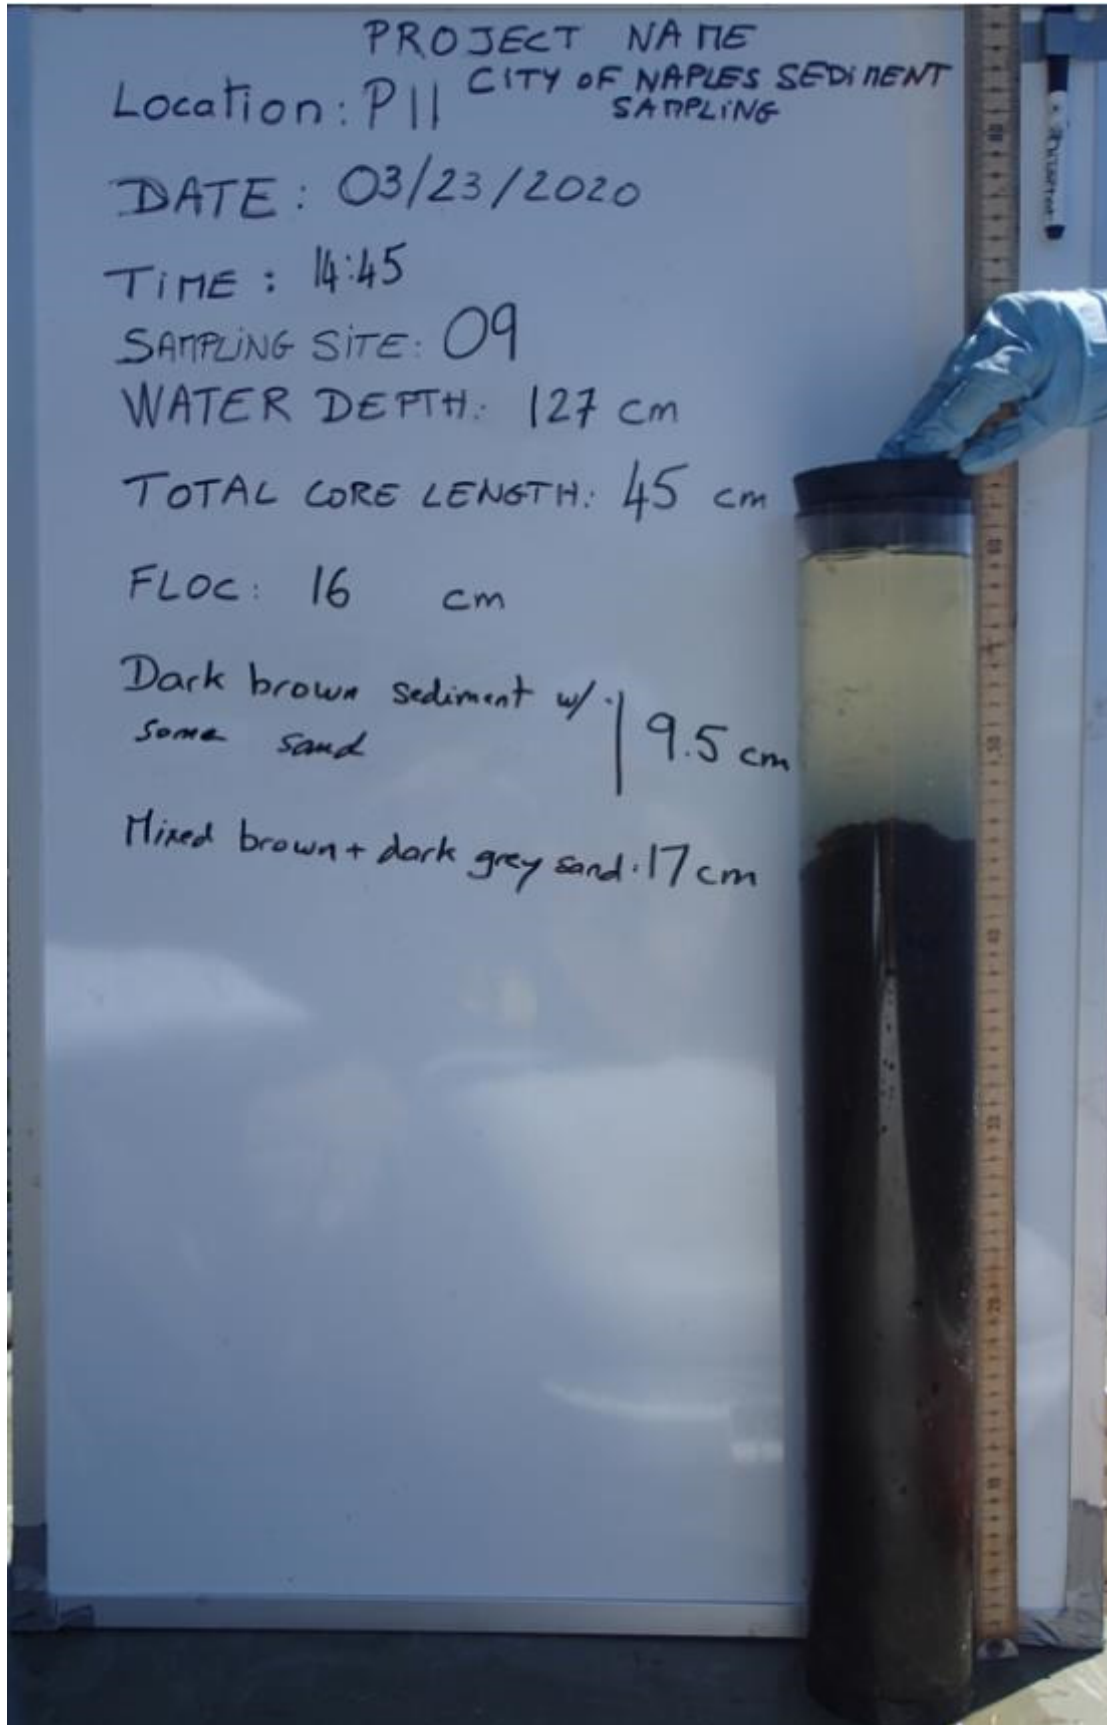 PROJECT NAME
CITY OF NAPLES SEDIMENT
SAMPLING
Location: P11
DATE: 03/23/2020
TIME: 14:45
SAMPLING SITE: 09
WATER DEPTH: 127 cm
TOTAL CORE LENGTH: 45 cm
FLOC: 16 cm
Dark brown sediment w/
some sand
9.5 cm
Mixed brown + dark grey sand. 17 cm
60
50
40
30
20
10